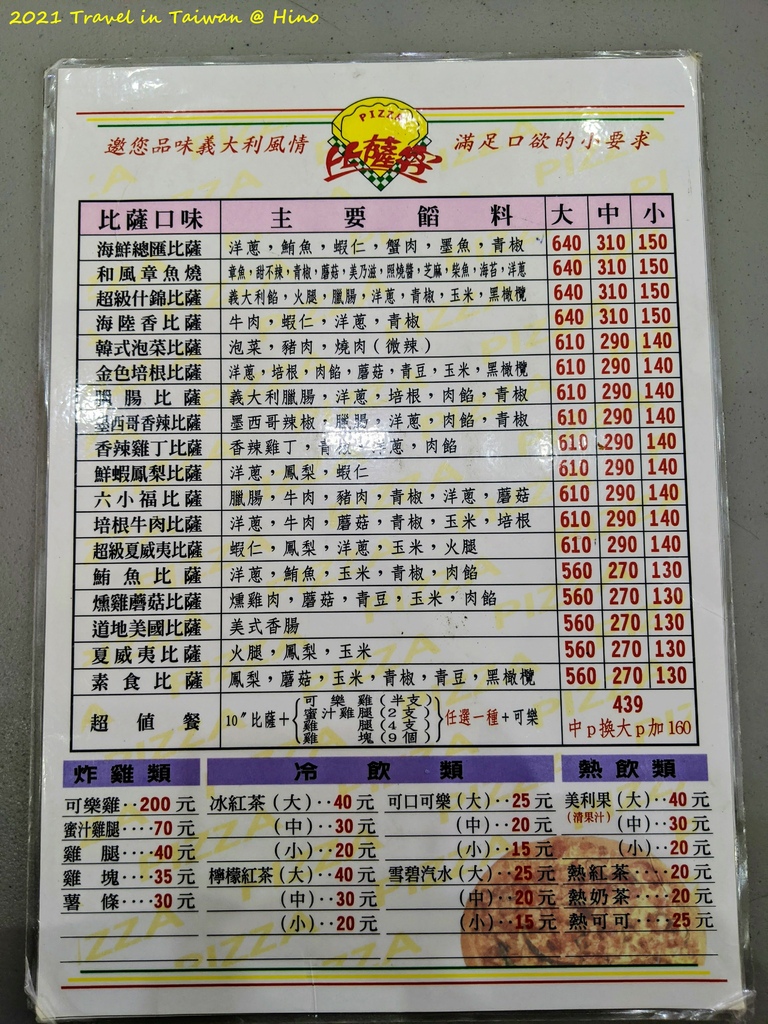 2021 Travel in Taiwan @ Hino
PIZZA
邀您品味義大利風情
比薩鄉
滿足口欲的小要求
比薩口味 主要餡料 大 中 小
海鮮總匯比薩 洋蔥，鮪魚，蝦仁，蟹肉，墨魚，青椒 640 310 150
和風章魚燒 章魚，甜不辣，青椒，蘑菇，美乃滋，照燒醬，芝麻，柴魚，海苔，洋蔥 640 310 150
超級什錦比薩 義大利餡，火腿，臘腸，洋蔥，青椒，玉米，黑橄欖 640 310 150
海陸香比薩 牛肉，蝦仁，洋蔥，青椒 640 310 150
韓式泡菜比薩 泡菜，豬肉，燒肉(微辣) 610 290 140
金色培根比薩 洋蔥，培根，肉餡，蘑菇，青豆，玉米，黑橄欖 610 290 140
臘腸比薩 義大利臘腸，洋蔥，培根，肉餡，青椒 610 290 140
墨西哥香辣比薩 墨西哥辣椒，臘腸，洋蔥，肉餡，青椒 610 290 140
香辣雞丁比薩 香辣雞丁，青椒，洋蔥，肉餡 610 290 140
鮮蝦鳳梨比薩 洋蔥，鳳梨，蝦仁 610 290 140
六小福比薩 臘腸，牛肉，豬肉，青椒，洋蔥，蘑菇 610 290 140
培根牛肉比薩 洋蔥，牛肉，蘑菇，青椒，玉米，培根 610 290 140
超級夏威夷比薩 蝦仁，鳳梨，洋蔥，玉米，火腿 610 290 140
鮪魚比薩 洋蔥，鮪魚，玉米，青椒，肉餡 560 270 130
燻雞蘑菇比薩 燻雞肉，蘑菇，青豆，玉米，肉餡 560 270 130
道地美國比薩 美式香腸 560 270 130
夏威夷比薩 火腿，鳳梨，玉米 560 270 130
素食比薩 鳳梨，蘑菇，玉米，青椒，青豆，黑橄欖 560 270 130
超值餐 10"比薩+
可樂雞(半支)
蜜汁雞腿(2支)
雞腿(4支)
雞塊(9個)
任選一種+可樂
439
中p換大p加160
炸雞類 冷飲類 熱飲類
可樂雞‥200元 冰紅茶(大)‥40元 可口可樂(大)‥25元 美利果(大)‥40元
蜜汁雞腿‥‥70元 (中)‥30元 (中)‥20元 (清果汁) (中)‥30元
雞腿‥‥40元 (小)‥20元 (小)‥15元 (小)‥20元
雞塊‥‥35元 檸檬紅茶(大)‥40元 雪碧汽水(大)‥25元 熱紅茶‥‥20元
薯條‥‥30元 (中)‥30元 (中)‥20元 熱奶茶‥‥20元
(小)‥20元 (小)‥15元 熱可可‥‥25元